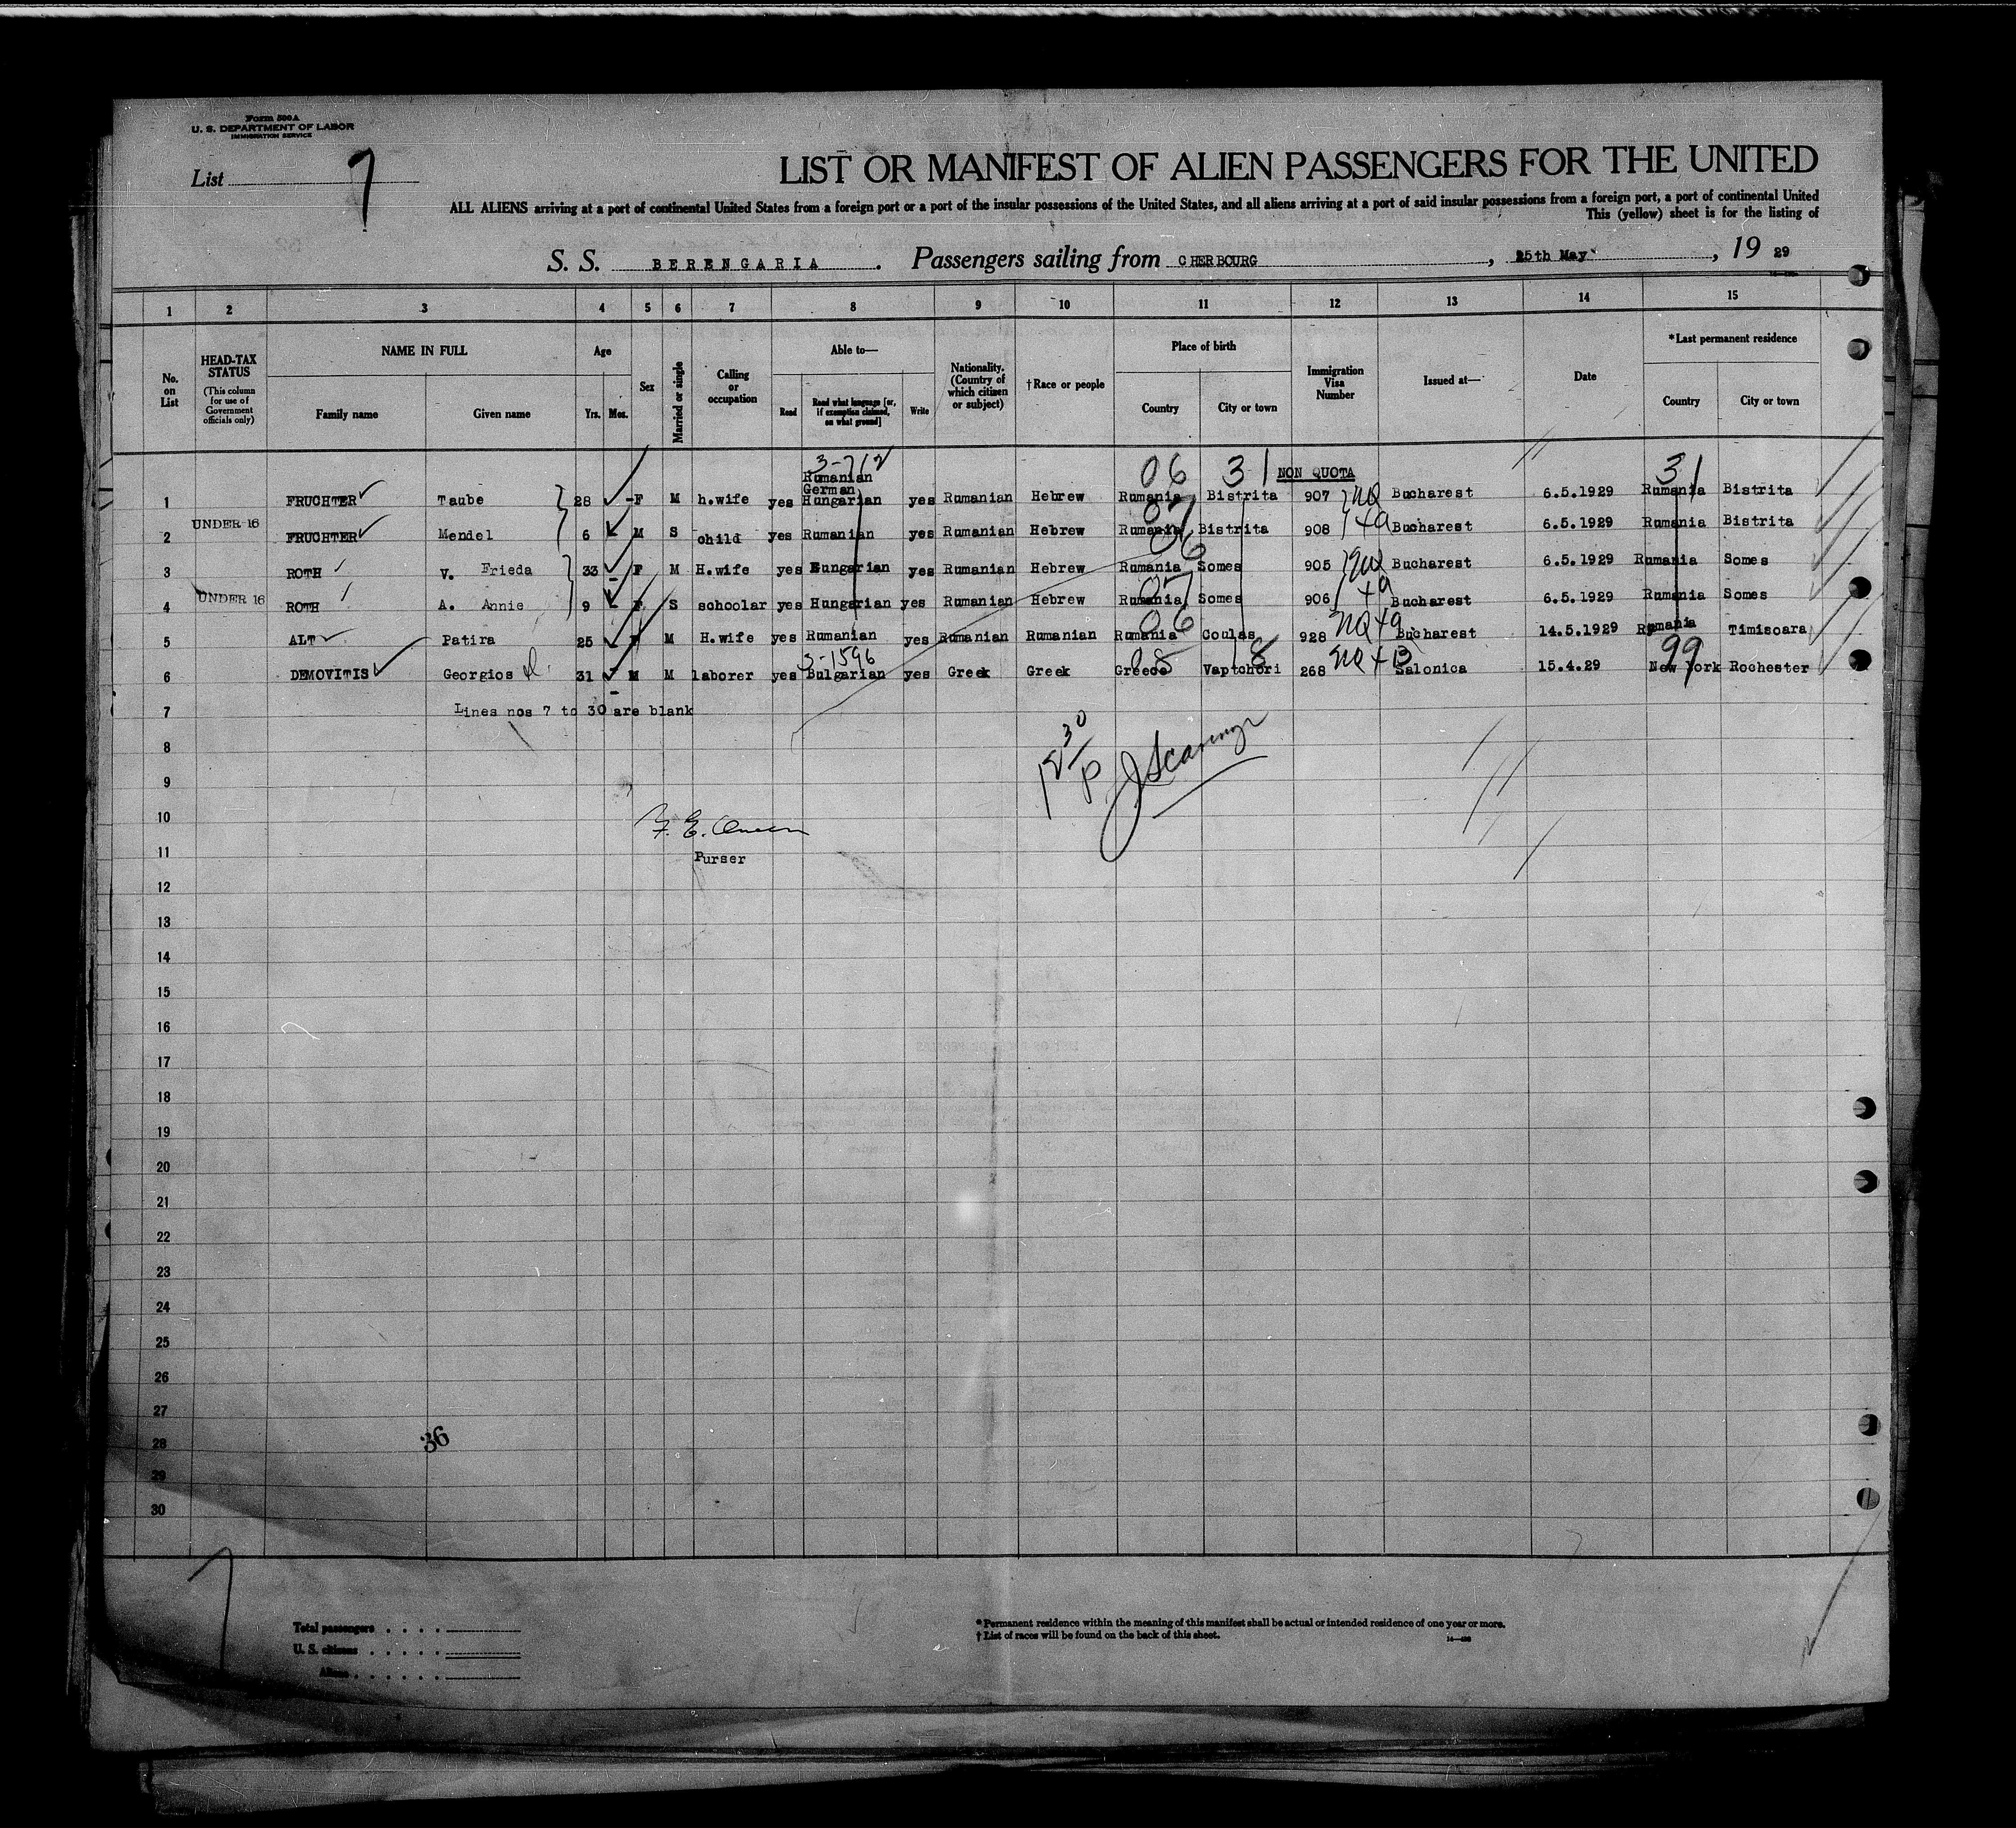 Form 500A
U. S. DEPARTMENT OF LABOR
IMMIGRATION SERVICE
List 7
LIST OR MANIFEST OF ALIEN PASSENGERS FOR THE UNITED
ALL ALIENS arriving at a port of continental United States from a foreign port or a port of the insular possessions of the United States, and all aliens arriving at a port of said insular possessions from a foreign port, a port of continental United
This (yellow) sheet is for the listing of
S. S. BERENGARIA . Passengers sailing from CHERBOURG , 25th May , 19 29
1 2 3 4 5 6 7 8 9 10 11 12 13 14 15
No. on List
HEAD-TAX STATUS (This column for use of Government officials only)
NAME IN FULL Family name Given name
Age Yrs. Mos.
Sex
Married or single
Calling or occupation
Able to— Read Read what language [or, if exemption claimed, on what ground] Write
Nationality. (Country of which citizen or subject)
†Race or people
Place of birth Country City or town
Immigration Visa Number
Issued at—
Date
*Last permanent residence Country City or town
3-712 06 31 NON QUOTA 31
Rumanian
German
1 FRUCHTER Taube 28 F M h.wife yes Hungarian yes Rumanian Hebrew Rumania Bistrita 907 NQ Bucharest 6.5.1929 Rumania Bistrita
07
UNDER 16
2 FRUCHTER Mendel 6 M S child yes Rumanian yes Rumanian Hebrew Rumania Bistrita 908 4a Bucharest 6.5.1929 Rumania Bistrita
06
3 ROTH v. Frieda 33 F M H.wife yes Hungarian yes Rumanian Hebrew Rumania Somes 905 NQ Bucharest 6.5.1929 Rumania Somes
07
UNDER 16
4 ROTH A. Annie 9 F S schoolar yes Hungarian yes Rumanian Hebrew Rumania Somes 906 4a Bucharest 6.5.1929 Rumania Somes
06
5 ALT Patira 25 F M H.wife yes Rumanian yes Rumanian Rumanian Rumania Coulas 928 NQ 4a Bucharest 14.5.1929 Rumania Timisoara
3-1596 18 99
6 DEMOVITIS Georgios 31 M M laborer yes Bulgarian yes Greek Greek Greece Vaptchori 268 NQ 4B Salonica 15.4.29 New York Rochester
7 Lines nos 7 to 30 are blank
8
9
12 30 P
10
F. E. Owen
11 Purser
12
13
14
15
16
17
18
19
20
21
22
23
24
25
26
27
36
28
29
30
7
Total passengers
U. S. citizens
Aliens
*Permanent residence within the meaning of this manifest shall be actual or intended residence of one year or more.
†List of races will be found on the back of this sheet.